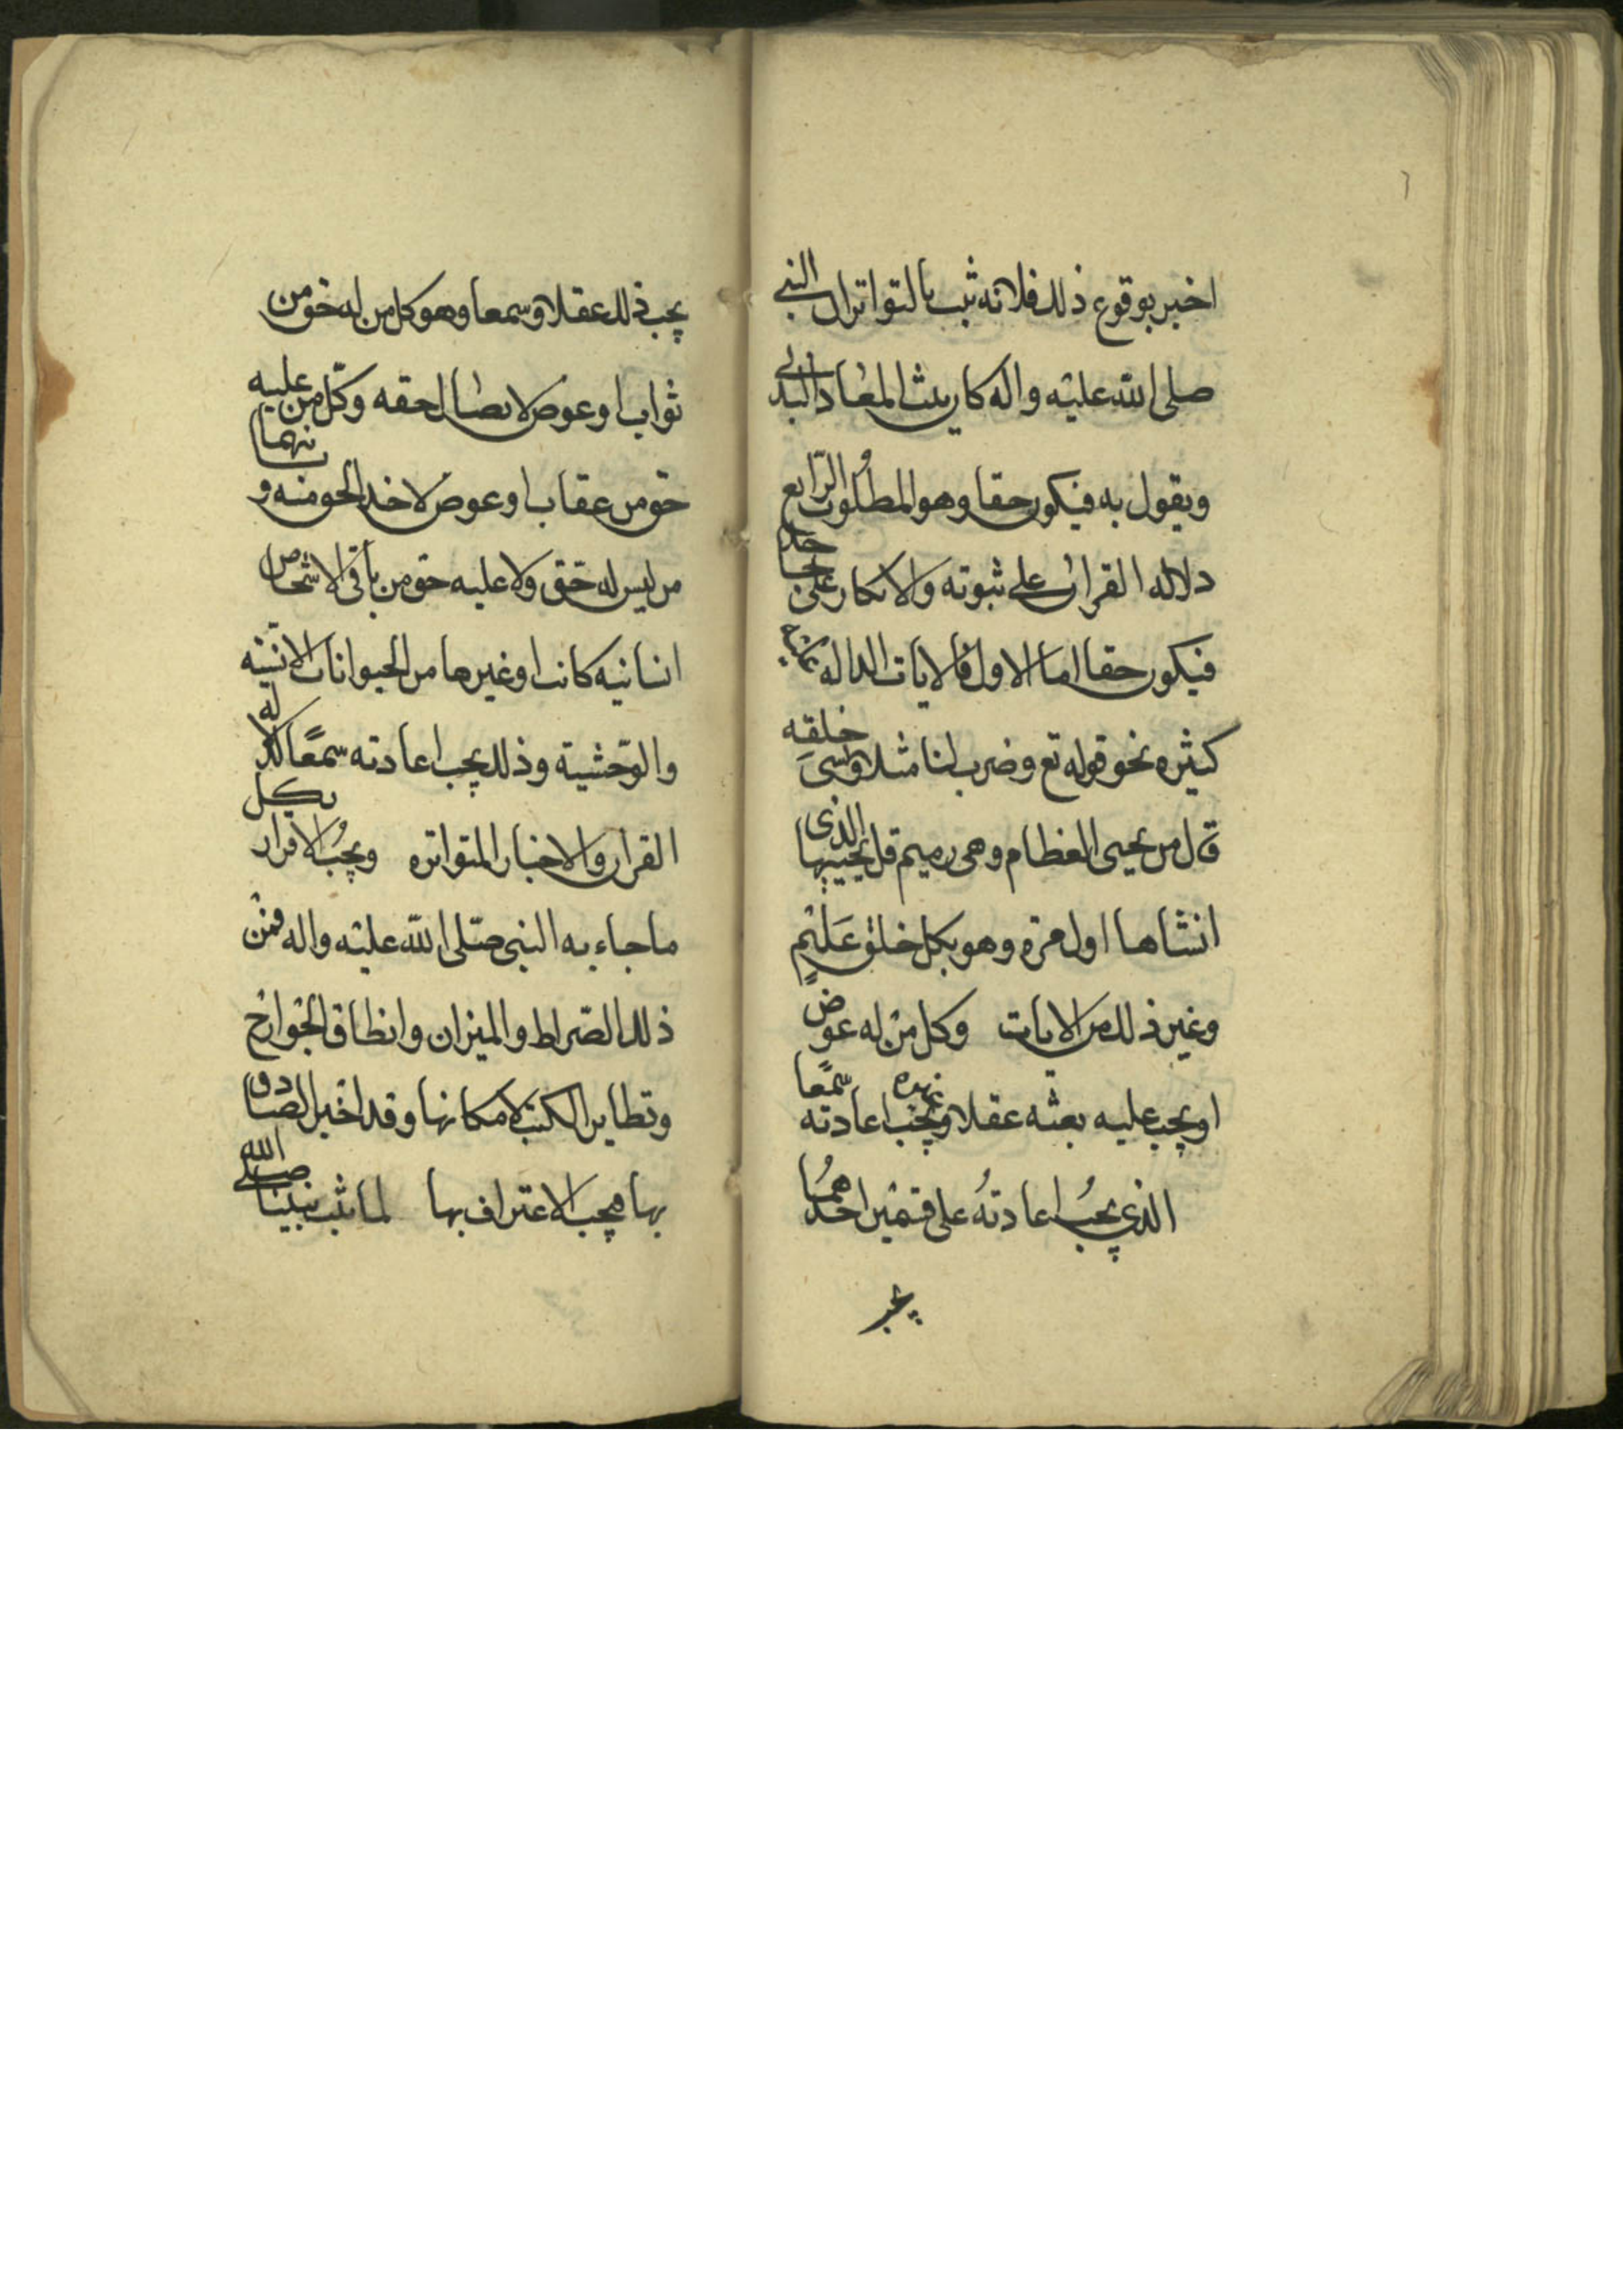 ٦
اخبر بوقوع ذلك فلانه ثبت بالتواتر ان النبي
صلى الله عليه واله كان يثبت المعاد البدني
ويقول به فيكون حقا وهو المطلوب الرابع
دلالة القران على ثبوته والانكار على جاحده
فيكون حقا اما الاول فالايات الدالة عليه
كثيره نحو قوله تع وضرب لنا مثلا ونسى خلقه
قال من يحيى العظام وهى رميم قل يحييها الذى
انشاها اول مرة وهو بكل خلق عليم
وغير ذلك من الايات وكل من له عوض
او يجب عليه بعثه عقلا وغيره يجب اعادته سمعا
الذي يجب اعادته على قسمين احدهما
يجب
يجب ذلك عقلا وسمعا وهو كل من له حق من
ثواب او عوض لايصال حقه وكل من عليه
حق من عقاب او عوض لاخذ الحق منه وثانيهما
من ليس له حق ولا عليه حق من باقى الاشخاص
انسانيه كانت او غيرها من الحيوانات الانسيه
والوحشية وذلك يجب اعادته سمعا لدلالة
القران والاخبار المتواتره ويجب الاقرار بكل
ما جاء به النبى صلى الله عليه واله فمن
ذلك الصراط والميزان وانطاق الجوارح
وتطاير الكتب لامكانها وقد اخبر الصادق
بها فيجب الاعتراف بها لما ثبت نبينا صلى الله